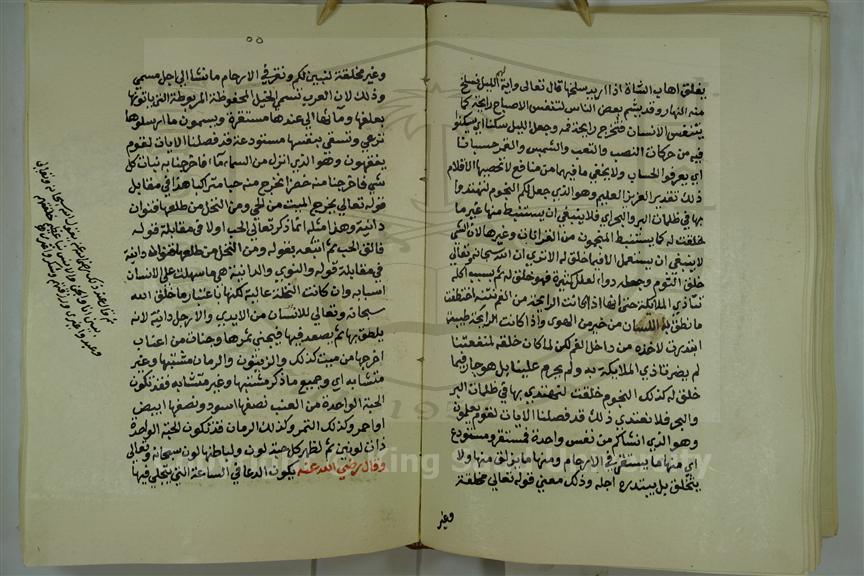 يفلق اهاب الشاة اذا اريد سلخها قال تعالى واية لهم الليل نسلخ
منه النهار وقد يشم بعض الناس لتنفس الاصباح رايحة كما
يتنفس الانسان فتخرج رايحة فمه وجعل الليل سكنا اي يسكنوا
فيه من حركات النصب والتعب والشمس والقمر حسبانا
اي يعرفوا الحساب ولا يخفي ما فيهما من منافع لا تحصيها الاقلام
ذلك تقدير العزيز العليم وهو الذي جعل لكم النجوم لتهتدوا
بها في ظلمات البر والبحر اي فلا ينبغي ان يستنبط منها غير ما
خلقت له كما يستنبط المنجمون من القرانات وغيرها لان الشي
لا ينبغي ان يستعمل الا فيما خلق له الا تري ان الله سبحانه وتعالى
خلق الثوم وجعله دوا لعلل كثيرة فهو خلق له ثم بسبب اكله
تتاذي الملايكة حتى انها اذا كانت الرايحة من الفم نتنة اختطفت
ما نطق به اللسان من خير من الهوى واذا كانت الرايحة طيبة
ابتدرت لاخذه من داخل الفم لكن لما كان خلقه لمنفعتنا
لم يضر تاذي الملايكة به ولم يحرم علينا بل هو جار فيما
خلق له كذلك النجوم خلقت لنهتدي بها في ظلمات البر
والبحر فلا نعتدي ذلك قد فصلنا الايات لقوم يعلمون
وهو الذي انشاكم من نفس واحدة فمستقر ومستودع
اي منها ما يستقر في الارحام ومنها ما يزلق منها ولا
يتخلق بل يبتدره اجله وذلك معنى قوله تعالى مخلقة
وغير
٥٥
وغير مخلقة لنبين لكم ونقر في الارحام ما نشا الى اجل مسمي
وذلك لان العرب تسمي الخيل المحفوظة المربوطة التي ياتوها
بعلفها ومآيها الي عندها مستقرة ويسمون ما ارسلوها
ترعي وتسقى بنفسها مستودعة قد فصلنا الايات لقوم
يفقهون وهو الذي انزل من السماء ماء فاخرجنا به نبات كل
شي فاخرجنا منه خضرا نخرج منه حبا متراكبا هذا في مقابل
قوله تعالى يخرج الحي من الميت ومن النخل من طلعها قنوان
دانية وهذا مثله لما ذكر تعالى الحب اولا في مقابلة قوله
فالق الحب ثم اتبعه بقوله ومن النخل من طلعها قنوان دانية
في مقابلة قوله والنوي والدانية هي ما سهلت على الانسان
اسبابه وان كانت النخلة عالية لكنها باعتبار ما خلق الله
سبحانه وتعالى للانسان من الايدي والارجل دانية لانه
يلطف بها ثم يصعد فيها فيجني ثمرها وجنات من اعناب
اخرجها من ميت كذلك والزيتون والرمان مشتبها وغير
متشابه اي وجميع ما ذكر مشتبها وغير متشابه فقد تكون
الحبة الواحدة من العنب نصفها اسود ونصفها ابيض
او احمر وكذلك التمر وكذلك الرمان فقد تكون الحبة الواحدة
ذات لونين ثم لظهر كل حبة لون ولباطنها لون سبحانه وتعالى
وقال رضي الله عنه يكون الدعا في الساعة التي يتجلي فيها